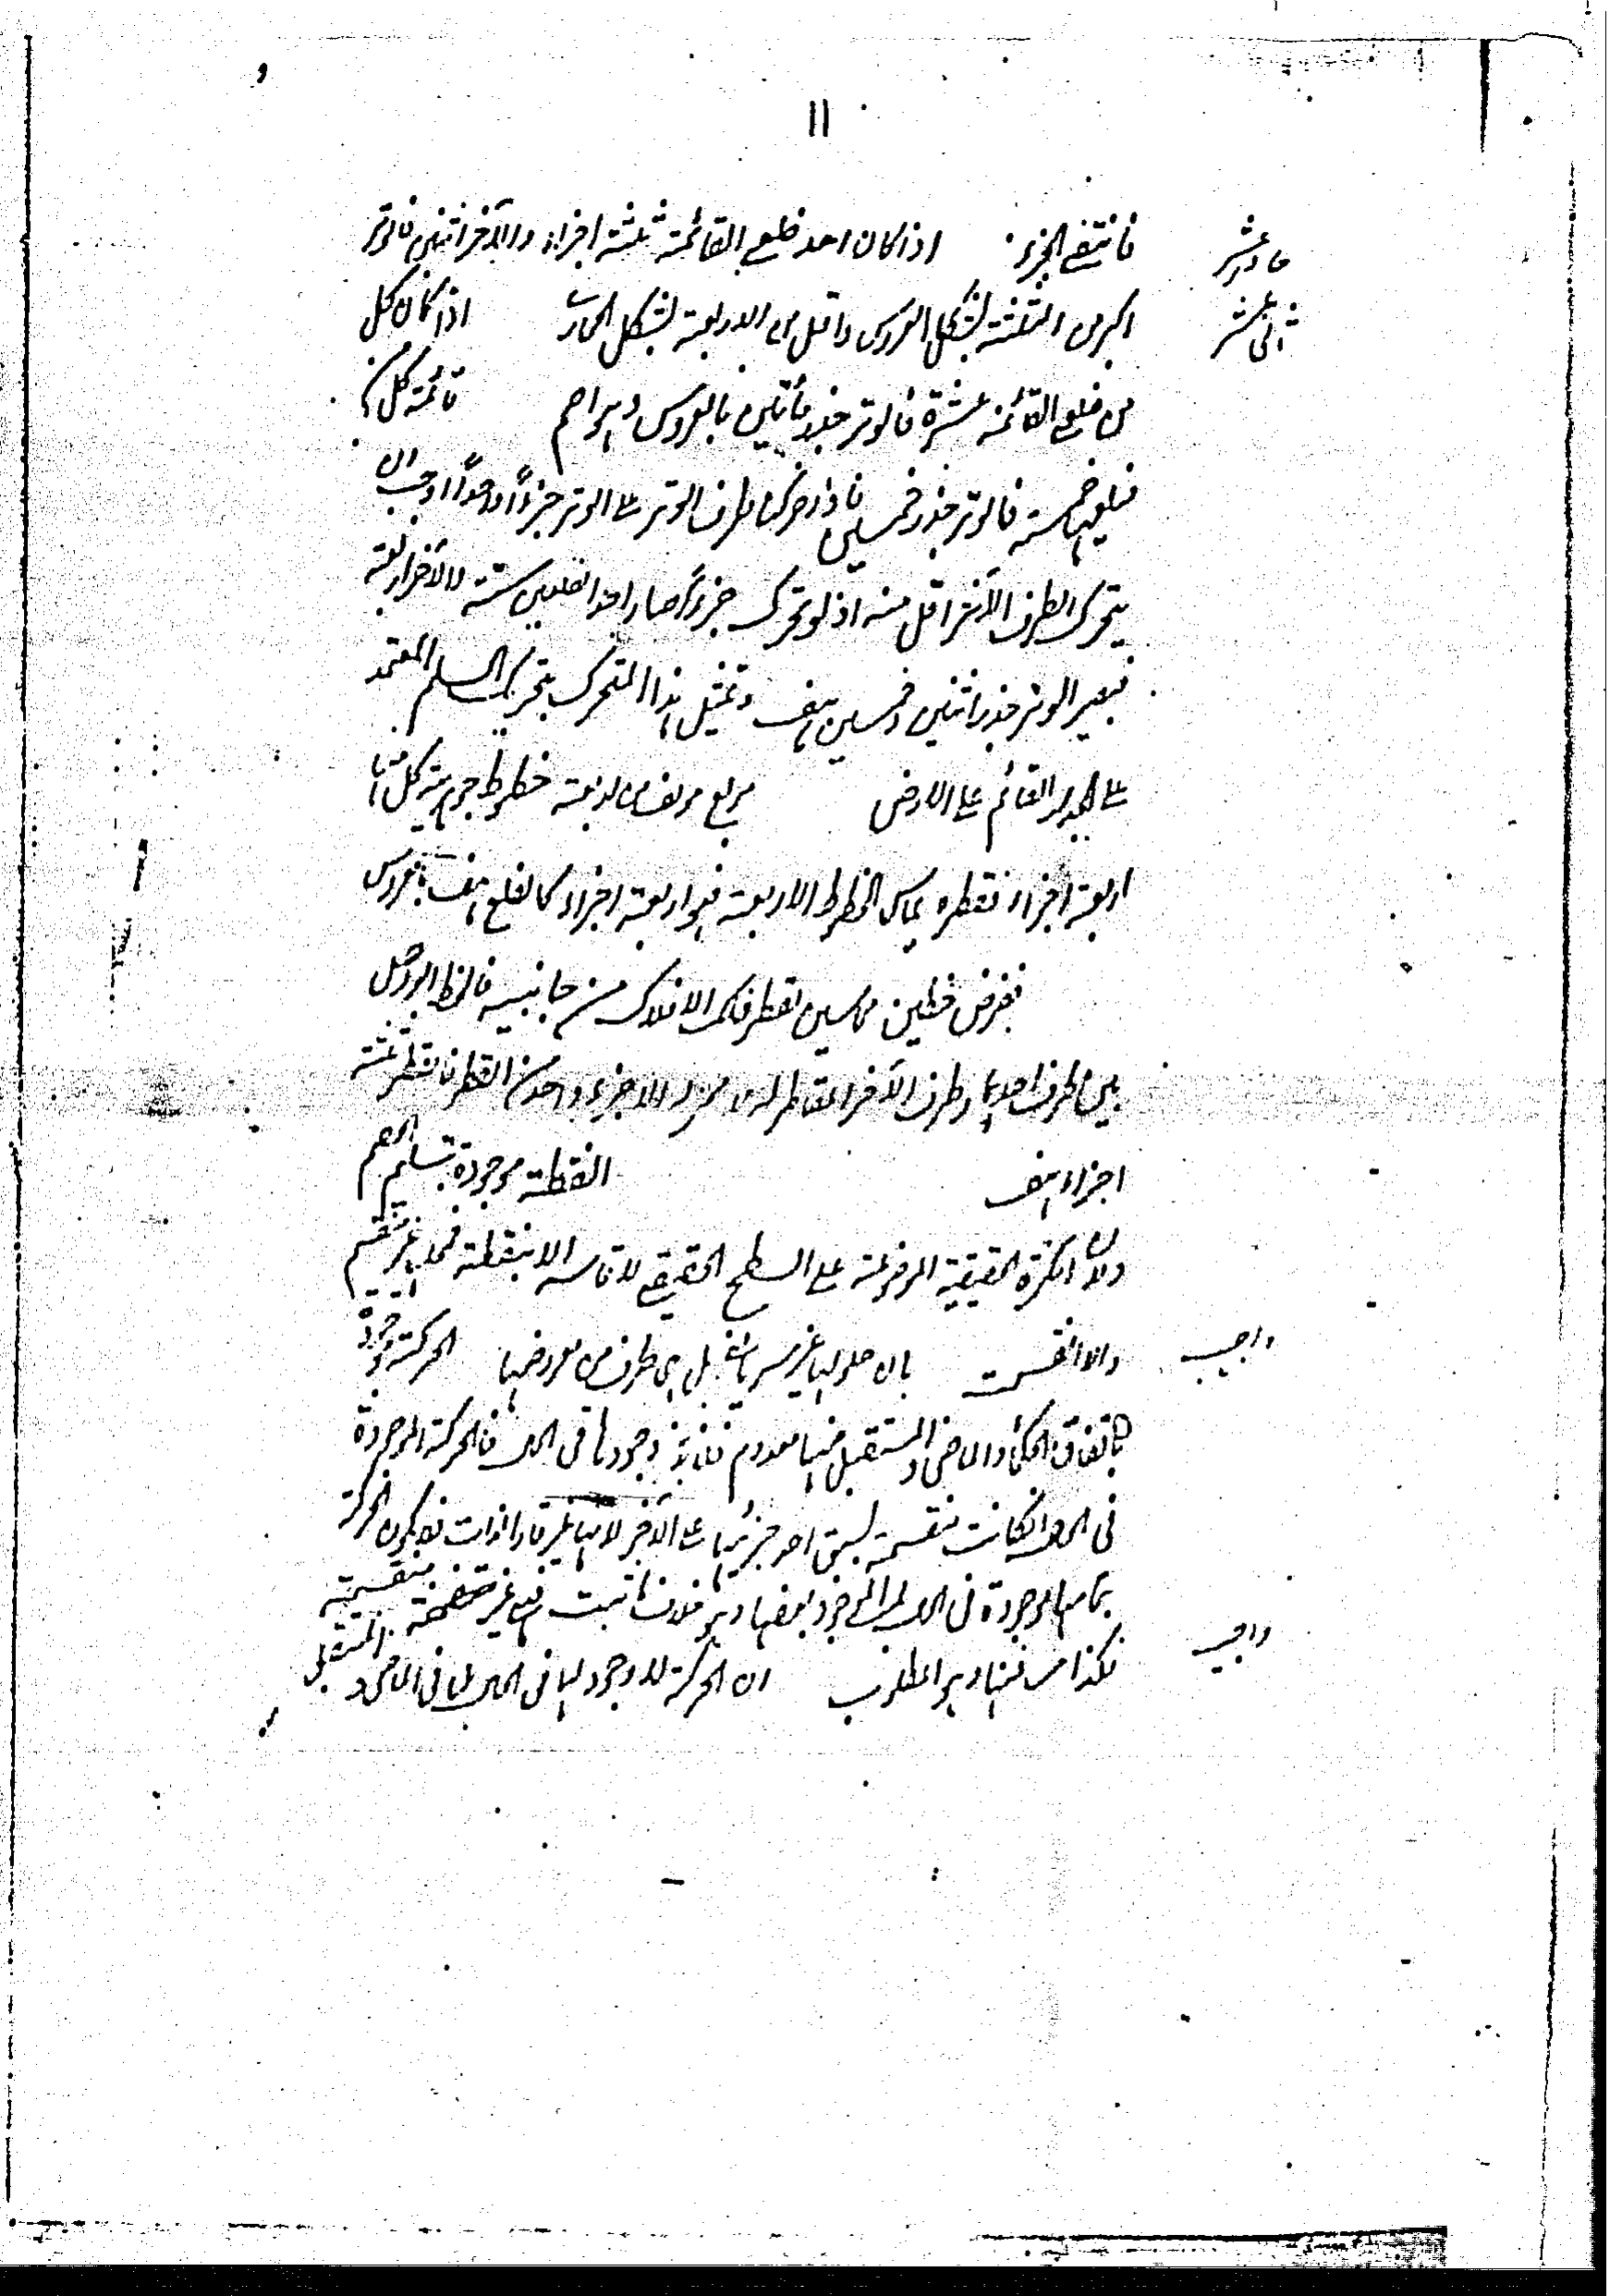 ١١
حادىعشر
فانتفى الجزء اذا كان احد ضلعى القائمة ثلثة اجزاء والآخر اثنين فالوتر
ثانىعشر
اكبر من الثلثة لشكل العروس واقل من الاربعة لشكل الحمارى اذا كان كل
من ضلعى القائمة عشرة فالوتر جذر مأتين بالعروس وهو اصم قائمة كل من
ضلعيها خمسة فالوتر جذر خمسين فاذا حركنا طرف الوتر على الوتر جزءاً واحداً وجب ان
يتحرك الطرف الآخر اقل منه اذ لو تحرك جزءاً صار احد الضلعين ستة والآخر اربعة
فيصير الوتر جذر اثنين وخمسين هف وتمثيل هذا المتحرك بتحريك السلم المعتمد
على الجدار القائم على الارض مربع مؤلف من اربعة خطوط جوهرية كل منها
اربعة اجزاء فقطره يماس الخطوط الاربعة فهو اربعة اجزاء كالضلع هف بالعروس
نفرض خطين مماسين لقطر فلك الافلاك من جانبيه فالخط الواصل
بين طرف احدهما وطرف الآخر المقاطر له لا يمر الا بجزء واحد من القطر فالقطر ثلثة
اجزاء هف النقطة موجودة بتسليم الخصم
ولان الكرة الحقيقية الموضوعة على السطح الحقيقى لا تماسه الا بنقطة فمحلها غير منقسم
واجيب
والا انقسمت بان حلولها غير سريانى بل هى طرف من معروضها الحركة موجودة
باتفاق الحكماء والماضى والمستقبل منها معدوم فلابد وجودها فى الحال فالحركة الموجودة
فى الحال ان كانت منقسمة لسبق احد جزئيها على الآخر لانها غير قار الذات فلا يكون الحركة
بتمامها موجودة فى الحال بل الموجود بعضها وهو خلاف ما ثبت فهى غير منقسمة
واجيب
فكذا مسافتها وهو المطلوب ان الحركة لا وجود لها فى الحال بل فى الماضى والمستقبل